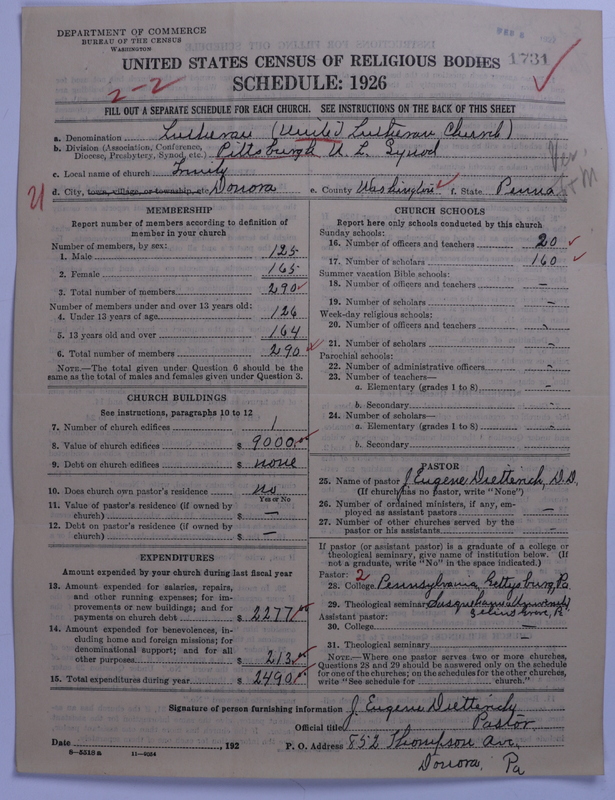 DEPARTMENT OF COMMERCE
BUREAU OF THE CENSUS
WASHINGTON
1731
UNITED STATES CENSUS OF RELIGIOUS BODIES
SCHEDULE: 1926
2-2
FILL OUT A SEPARATE SCHEDULE FOR EACH CHURCH. SEE INSTRUCTIONS ON THE BACK OF THIS SHEET
a. Denomination Lutheran (United Lutheran Church)
b. Division (Association, Conference, Diocese, Presbytery, Synod, etc.) Pittsburgh U. L. Synod
c. Local name of church Trinity
d. City, town, village, or township, etc. Donora e. County Washington f. State Penna
MEMBERSHIP
Report number of members according to definition of member in your church
Number of members, by sex:
1. Male 125
2. Female 165
3. Total number of members 290
Number of members under and over 13 years old:
4. Under 13 years of age 126
5. 13 years old and over 164
6. Total number of members 290
NOTE.—The total given under Question 6 should be the same as the total of males and females given under Question 3.
CHURCH BUILDINGS
See instructions, paragraphs 10 to 12
7. Number of church edifices 1
8. Value of church edifices $ 9000.00
9. Debt on church edifices $ none
10. Does church own pastor's residence no
Yes or No
11. Value of pastor's residence (if owned by church) $ —
12. Debt on pastor's residence (if owned by church) $ —
EXPENDITURES
Amount expended by your church during last fiscal year
13. Amount expended for salaries, repairs, and other running expenses; for improvements or new buildings; and for payments on church debt $ 2277.00
14. Amount expended for benevolences, including home and foreign missions; for denominational support; and for all other purposes $ 213.00
15. Total expenditures during year $ 2490.00
CHURCH SCHOOLS
Report here only schools conducted by this church
Sunday schools:
16. Number of officers and teachers 20
17. Number of scholars 160
Summer vacation Bible schools:
18. Number of officers and teachers —
19. Number of scholars —
Week-day religious schools:
20. Number of officers and teachers -
21. Number of scholars -
Parochial schools:
22. Number of administrative officers -
23. Number of teachers—
a. Elementary (grades 1 to 8) —
b. Secondary -
24. Number of scholars—
a. Elementary (grades 1 to 8) -
b. Secondary -
PASTOR
25. Name of pastor J. Eugene Dietterich, D.D.
(If church has no pastor, write "None")
26. Number of ordained ministers, if any, employed as assistant pastors —
27. Number of other churches served by the pastor or his assistants -
If pastor (or assistant pastor) is a graduate of a college or theological seminary, give name of institution below. (If not a graduate, write "No" in the space indicated.)
Pastor: 2
28. College Pennsylvania, Gettysburg, Pa
29. Theological seminary Susquehanna University
Selins Grove, Pa
Assistant pastor:
30. College —
31. Theological seminary —
NOTE.—Where one pastor serves two or more churches, Questions 28 and 29 should be answered only on the schedule for one of the churches; on the schedules for the other churches, write "See schedule for church."
Signature of person furnishing information J. Eugene Dietterich
Official title Pastor
Date , 192 P. O. Address 852 Thompson Ave,
Donora, Pa
8—5318 a 11—4034